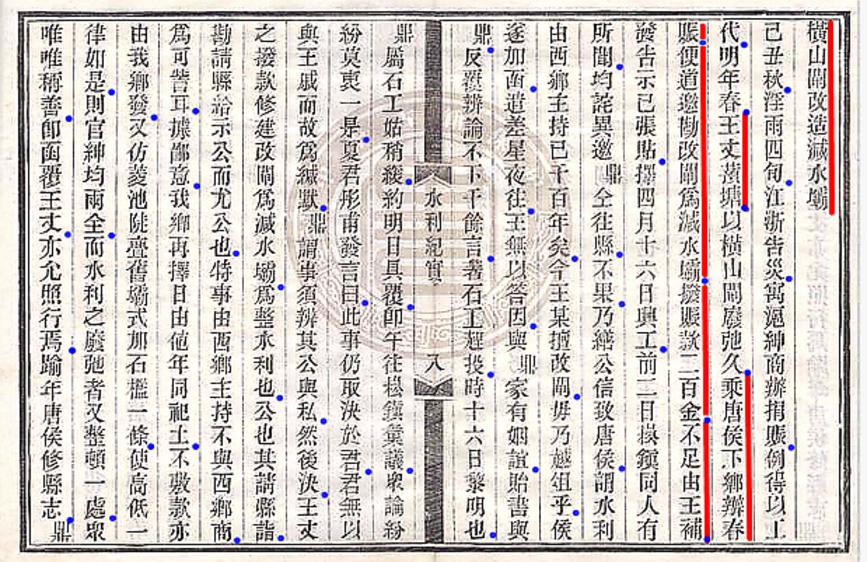 橫山閘改造減水壩
己丑秋淫雨四旬江浙告災寓滬紳商辦捐賑例得以工
代明年春王丈黃塘以橫山閘廢弛久乘唐侯下鄉辦春
賑便道邀勘改閘為減水壩撥賑款二百金不足由王補
發告示已張貼擇四月十六日興工前二日棪鎮同人有
所聞均詫異邀鼎仝往縣不果乃繕公信致唐侯謂水利
由西鄉主持已千百年矣今王某擅改閘毋乃越俎乎侯
遂加函遣差星夜往王無以答因與鼎家有姻誼貽書與
鼎反覆辨論不下千餘言著石工趕投時十六日黎明也
水利紀實 八
鼎屬石工姑稍緩約明日具覆卽午往棪鎮彙議眾論紛
紛莫衷一是夏君彤甫發言曰此事仍取決於君君無以
與王戚而故為緘默鼎謂事須辨其公與私然後決王丈
之撥款修建改閘為減水壩為整水利也公也其請縣詣
勘請縣給示公而尤公也特事由西鄉主持不與西鄉商
為可訾耳據鄙意我鄉再擇日由値年同祀土不敷款亦
由我鄉發又仿菱池陡亹舊壩式加石檻一條使高低一
律如是則官紳均兩全而水利之廢弛者又整頓一處眾
唯唯稱善卽函覆王丈亦允照行焉踰年唐侯修縣志鼎